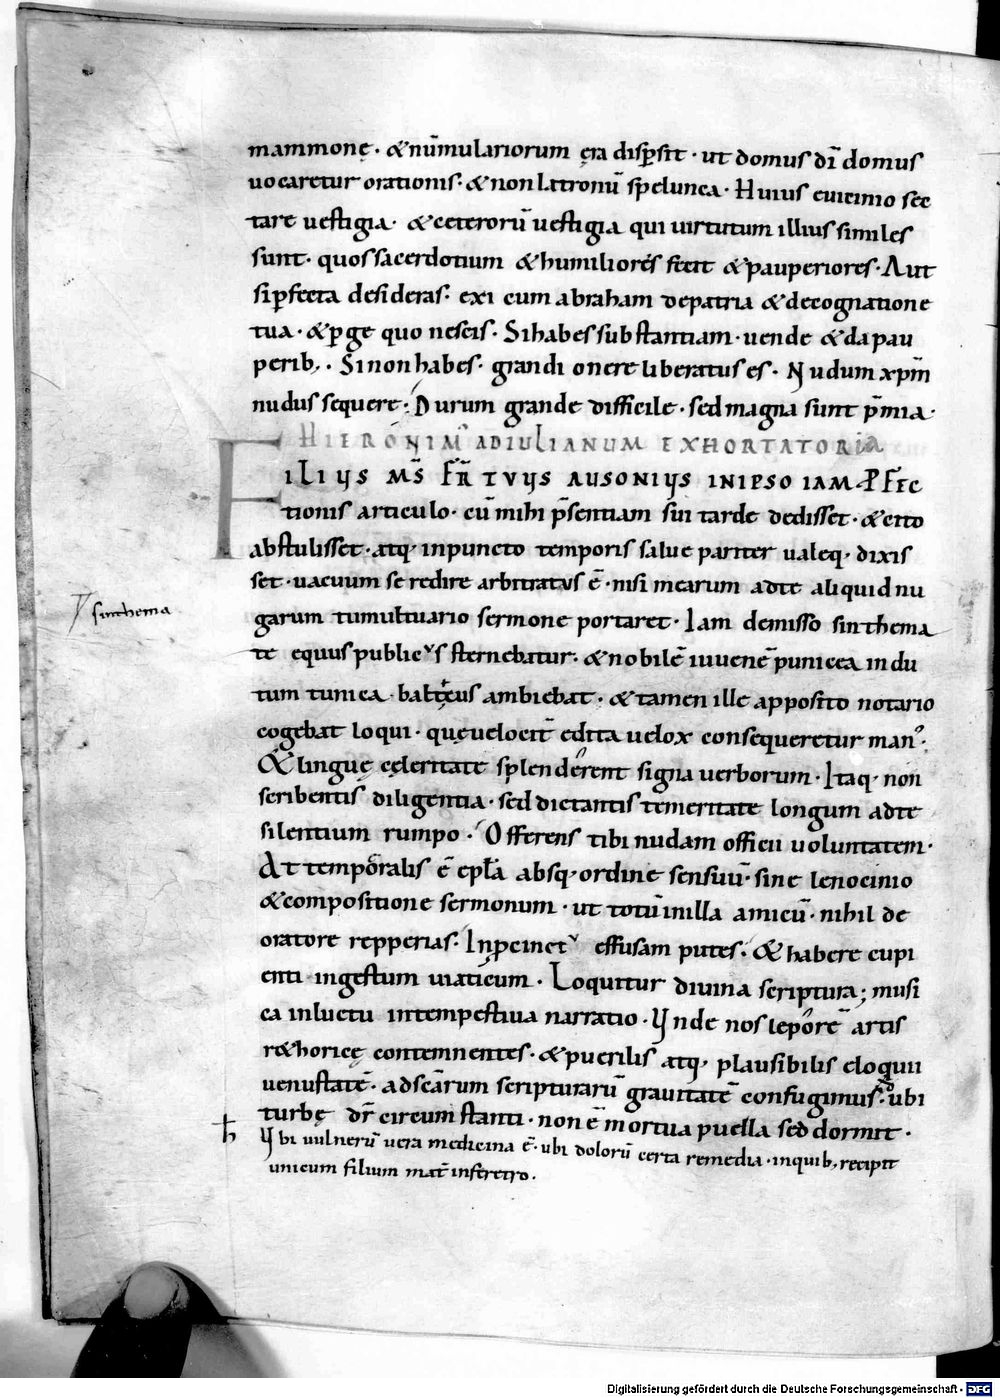 mammonę · & nūmulariorum ęra disꝑsit · ut domus dī domus
uocaretur orationis · & non latronū spelunca · Huius euicinio sec
tare uestigia · & ceterorū uestigia qui uirtutum illius similes
sunt · quos sacerdotium & humiliores fecit & pauperiores · Aut
si ꝑfecta desideras · exi cum abraham de patria & de cognatione
tua · & ꝑge quo nescis · Si habes substantiam · uende & da pau
perib; · Si non habes · grandi onere liberatus es · Nudum xp̄m
nudus sequere · Durum grande difficile · sed magna sunt p̄mia ·
HIERONIMꝰ AD IULIANUM EXHORTATORIA
FILIUS MS̄ FR̄ TUUS AUSONIUS IN IPSO IAM PFEC
tionis articulo · cū mihi p̄sentiam sui tarde dedisset · & cito
abstulisset · atq; in puncto temporis salue pariter ualeq; dixis
set · uacuum se redire arbitratus ē · nisi mearum ad te aliquid nu
garum tumultuario sermone portaret · Iam demisso sinthema
sinthema
te equus publicus sternebatur · & nobilē iuuenē punicea indu
tum tunica · balteus ambiebat · & tamen ille apposito notario
cogebat loqui · quę uelocit̄ edita uelox consequeretur manꝰ ·
& linguę cęleritate splenderent signa uerborum · Itaq; non
scribentis diligentia · sed dictantis temeritate longum ad te
silentium rumpo · Offerens tibi nudam officii uoluntatem ·
At temporalis ē epl̄a absq; ordine sensuū · sine lenocinio
& compositione sermonum · ut totū in illa amicū · nihil de
oratore repperias · In ꝓcinctu effusam putes · & habere cupi
enti ingestum uiaticum · Loquitur diuina scriptura; musi
ca in luctu intempestiua narratio · Unde nos leporē artis
r&horicę contemnentes · & puerilis atq; plausibilis eloquii
uenustatē · ad scārum scripturarū grauitatē confugimus · ubi
turbę dr̄ circum stanti · non ē mortua puella sed dormit ·
Ubi uulnerū uera medicina ē · ubi dolorū certa remedia · in quib; recipit
unicum filium mat̄ in feretro ·
Digitalisierung gefördert durch die Deutsche Forschungsgemeinschaft - DFG